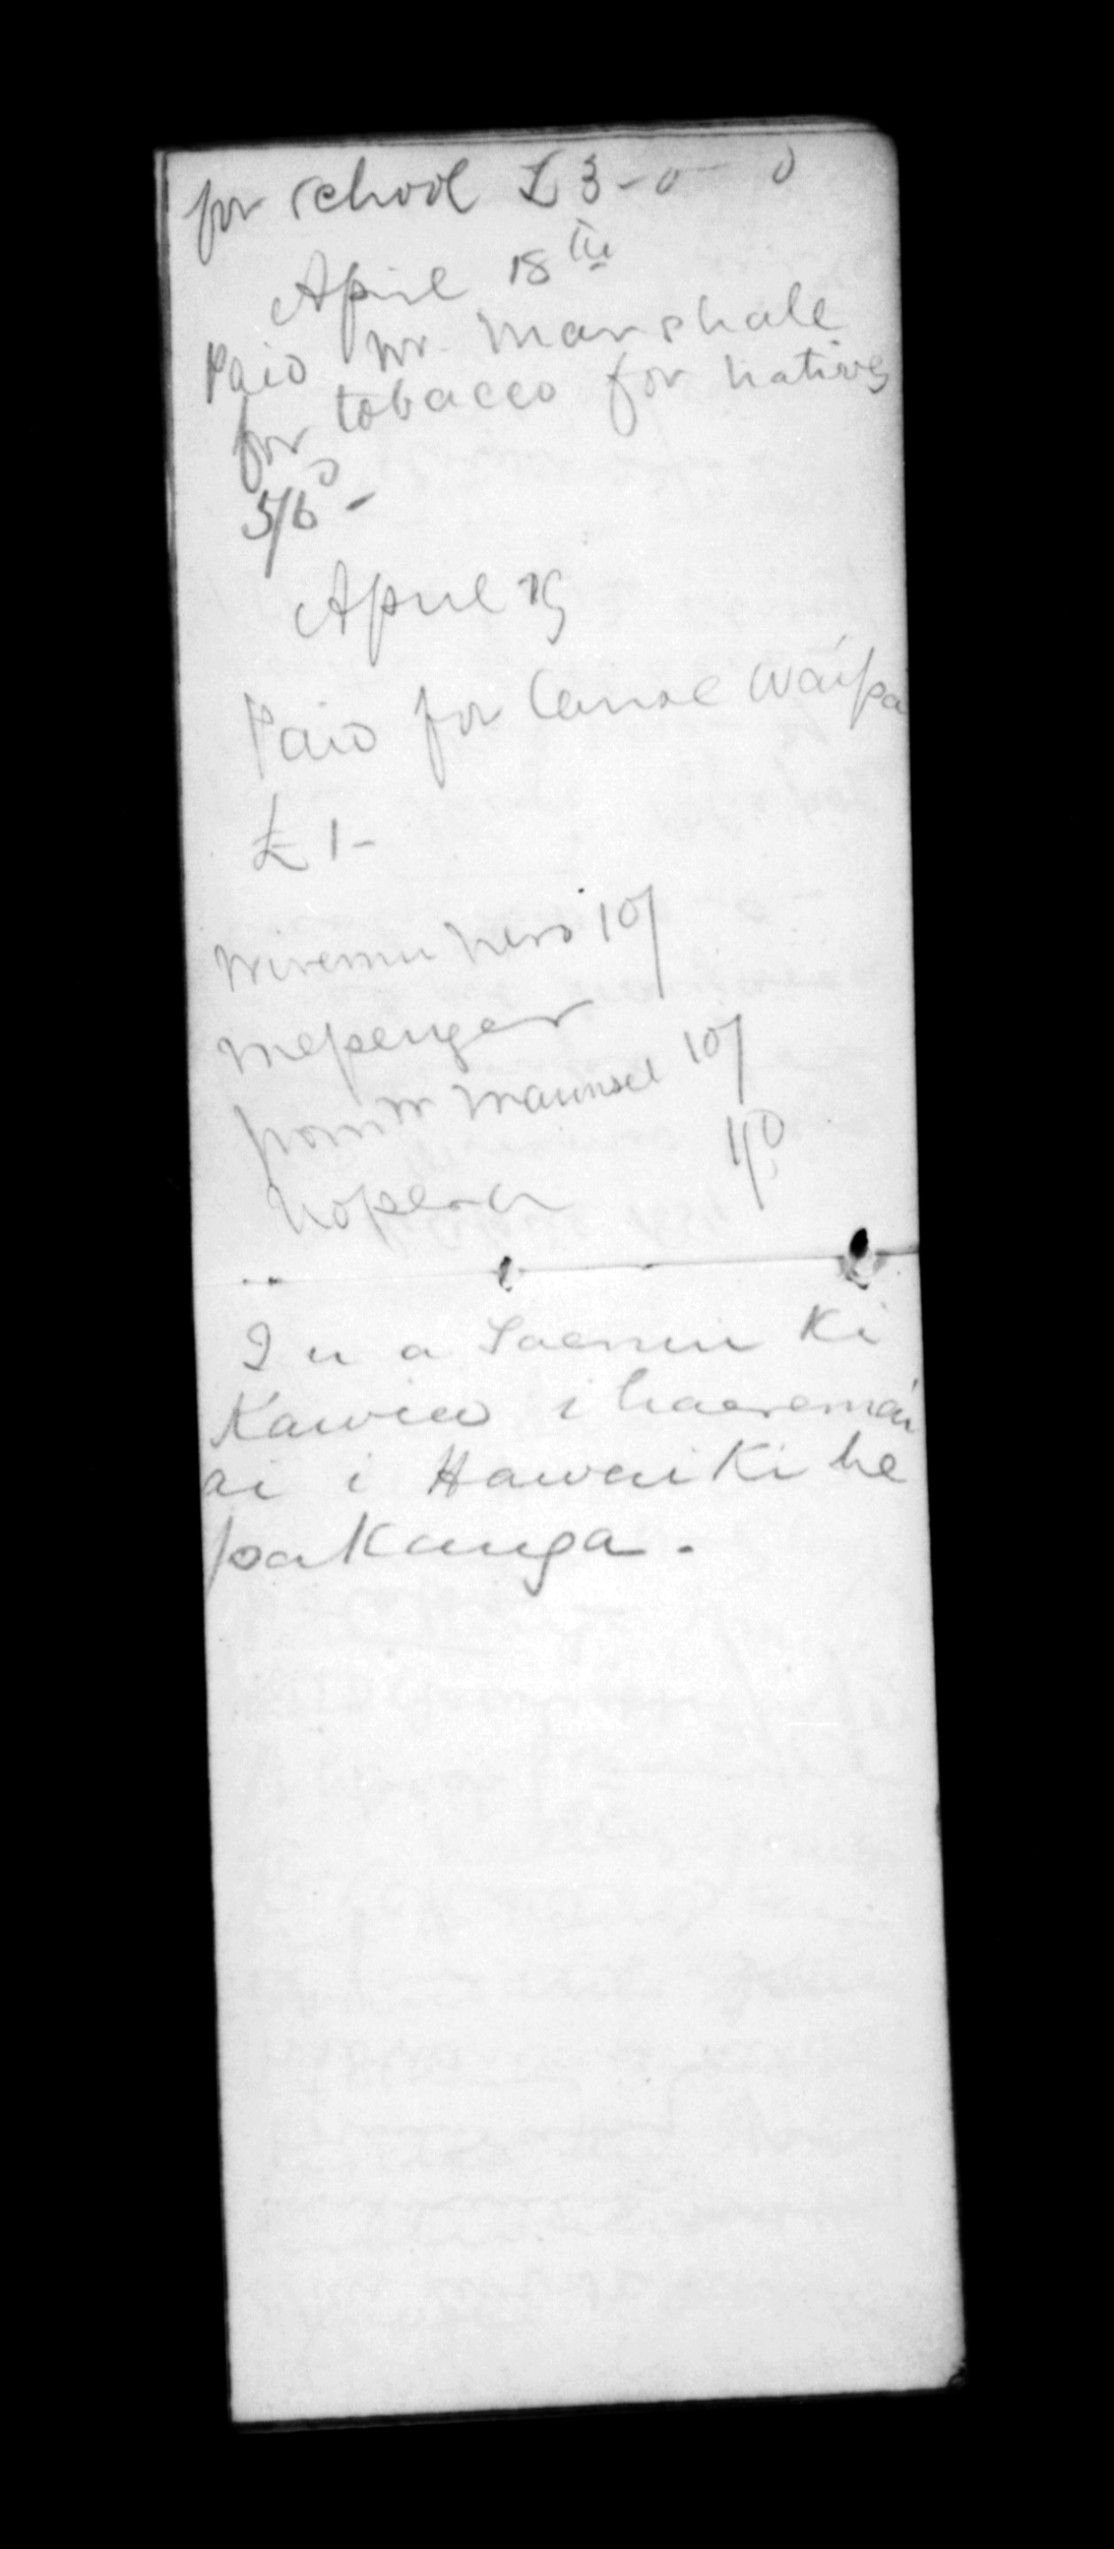 for school £3-0-0
April 18th
Paid Mr. Marshall
for tobacco for natives
5/6d -
April 19
Paid for Canoe Waipa
£1-
Wiremu Nero 10/
Messenger
from Mr Maunsel 10/
Hopera 1/0
I u a Taenui Ki
Kawia i haeremai
ai i Hawaiki he
pakanga.